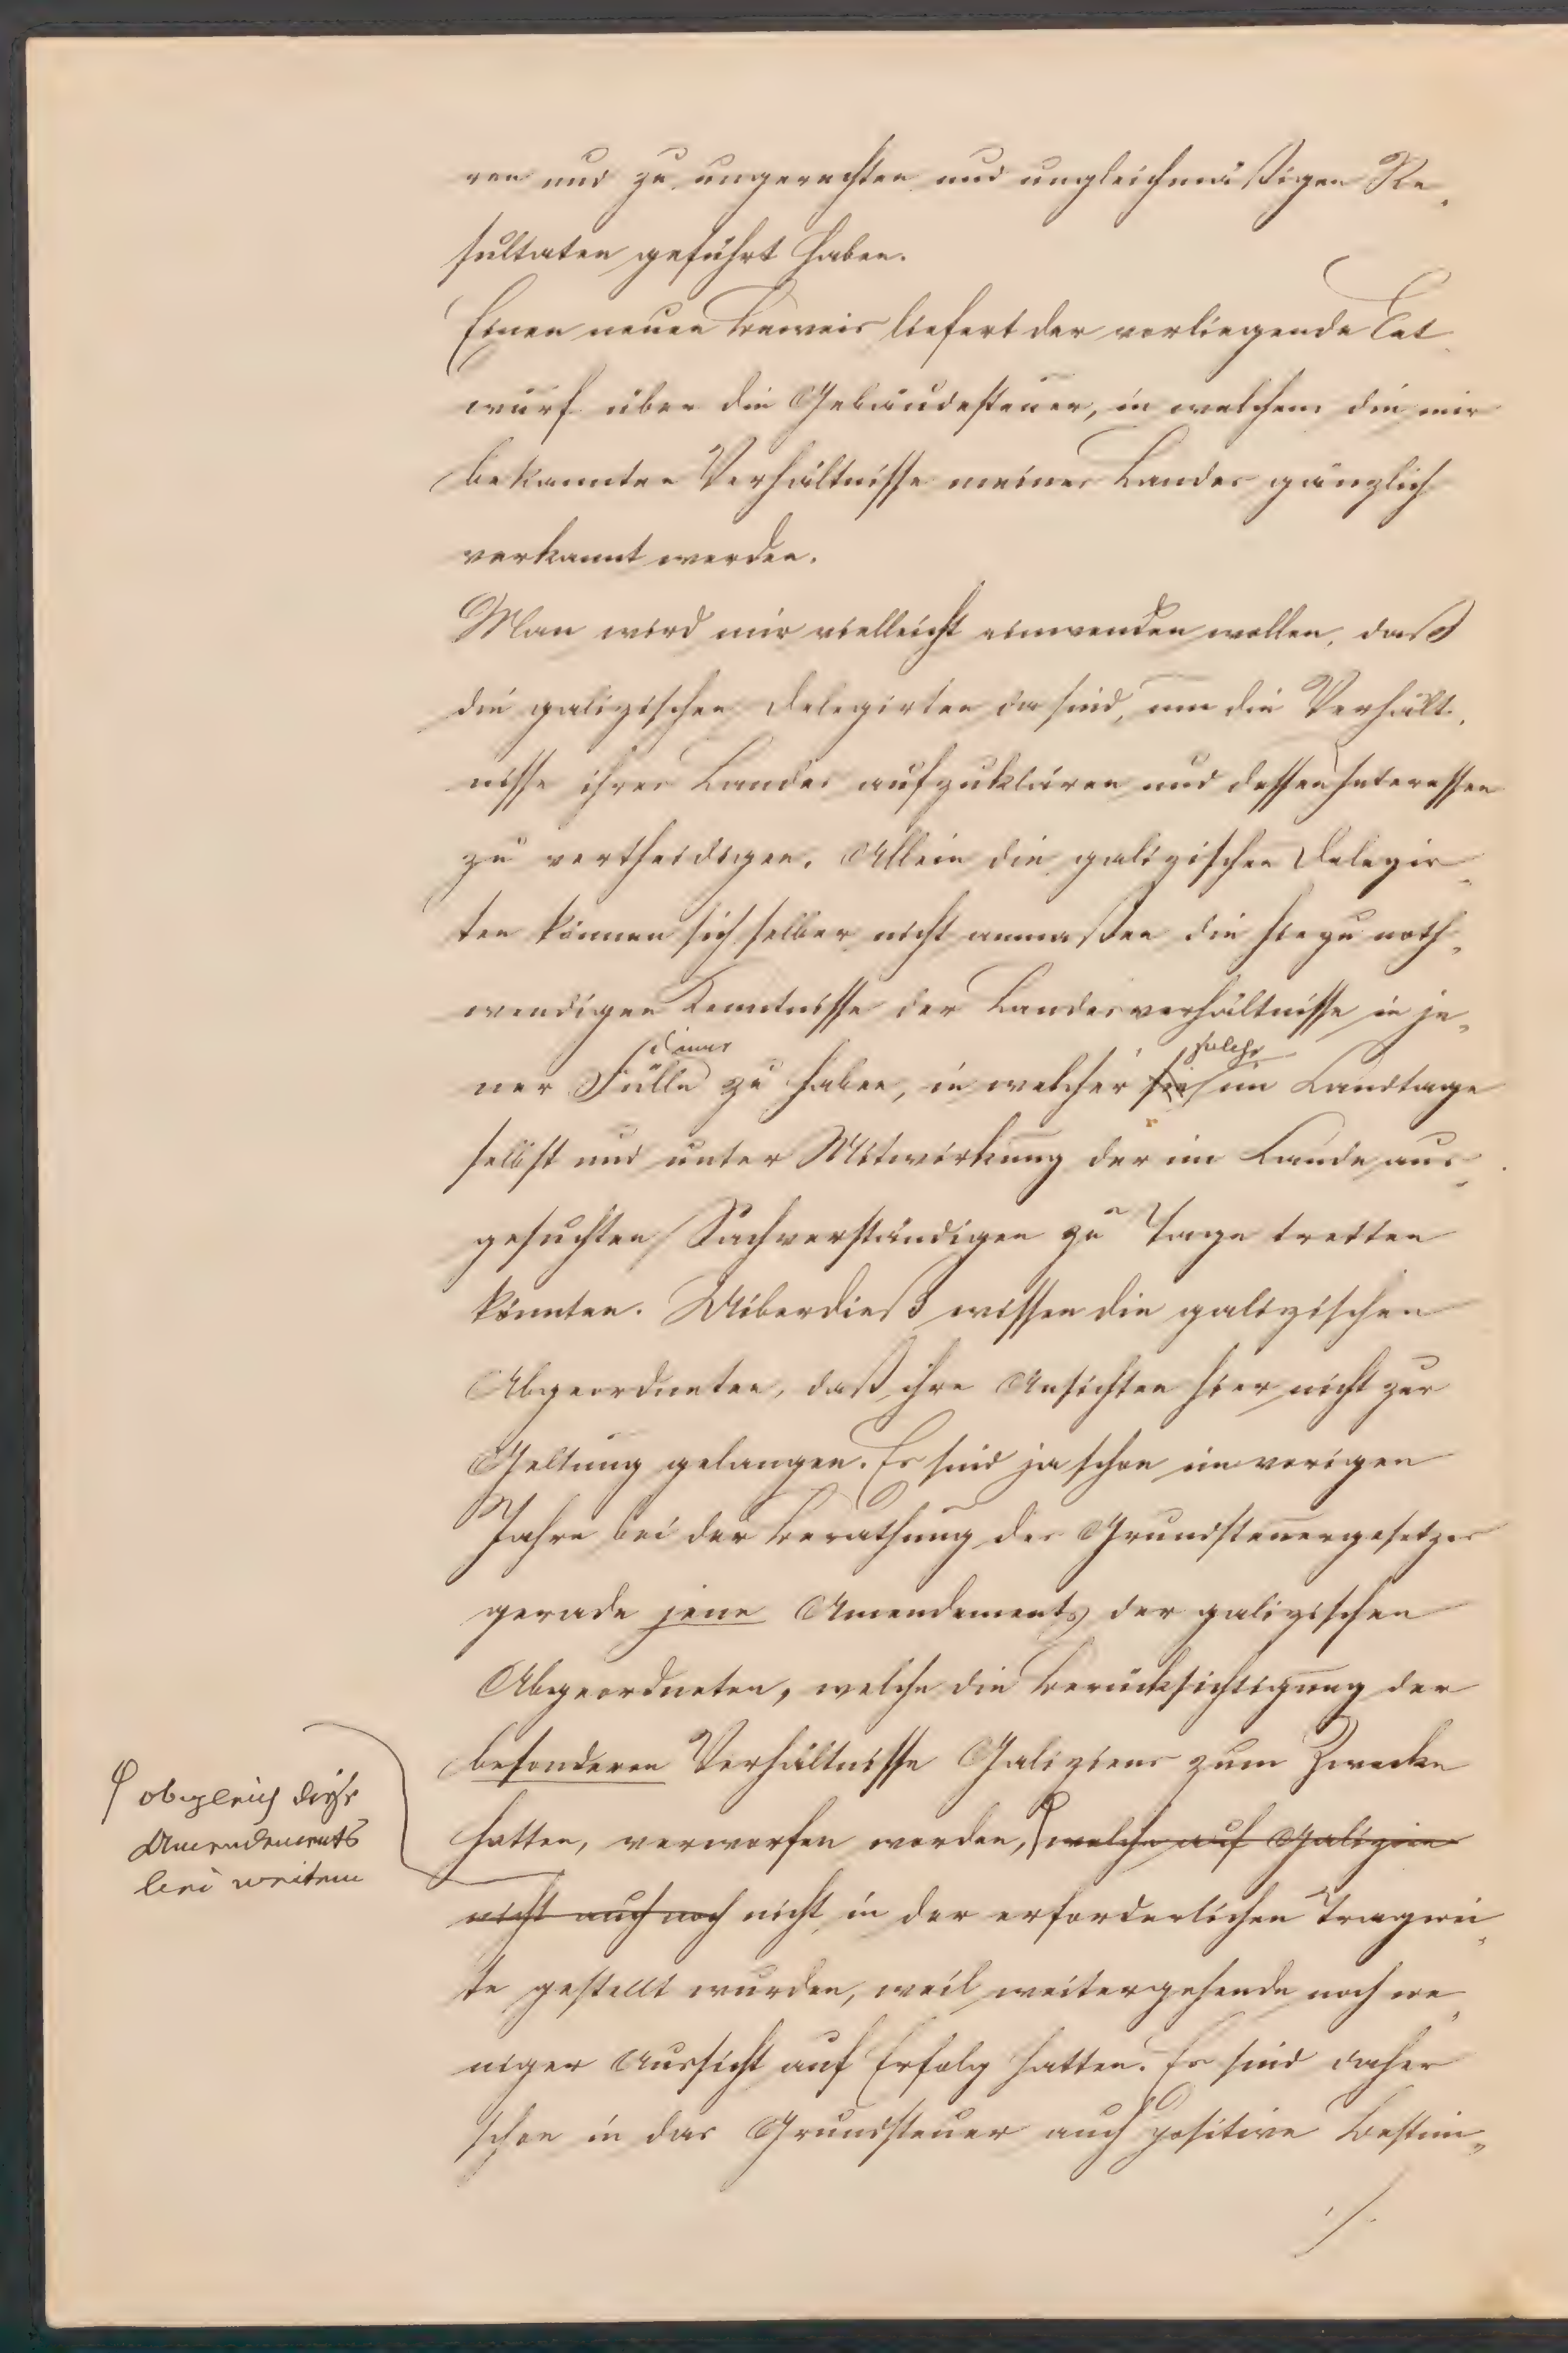 ren und zu ungerechten und ungleichmäßigen Re„
sultaten geführt haben.
Einen neuen Beweis liefert der vorliegende Ent„
wurf über die Gebäudesteuer, in welchem die mir
bekannten Verhältnisse meines Landes gänzlich
verkannt werden.
Man wird mir vielleicht einwenden wollen, daß
die galizischen Delegirten da sind, um die Verhält„
nisse ihres Landes aufzuklären und dessen Interessen
zu vertheidigen. Allein die galizischen Delegir„
ten können sich selber nicht anmaßen die hiezu noth„
wendigen Kenntnisse der Landesverhältnisse in je„
solche
ner Fülle zu haben, in welcher sie im Landtage
selbst und unter Mitwirkung der im Lande aus„
gesuchten Sachverständigen zu Tage tretten
könnten. Uiberdieß wissen die galizischen
Abgeordneten, daß ihre Ansichten hier nicht zur
Geltung gelangen. Es sind ja schon im vorigen
Jahre bei der Berathung des Grundsteuergesetzes
gerade jene Amendements der galizischen
Abgeordneten, welche die Berücksichtigung der
besonderen Verhältnisse Galiziens zum Zwecke
hatten, verworfen worden, welche auf Galizien
obgleich diese
Amendements
bei weitem
nicht auch noch nicht in der erforderlichen Tragwei„
te gestellt wurden, weil weitergehende noch we„
niger Aussicht auf Erfolg hatten. Es sind daher
schon in das Grundsteuer auch positive Bestim„
./.